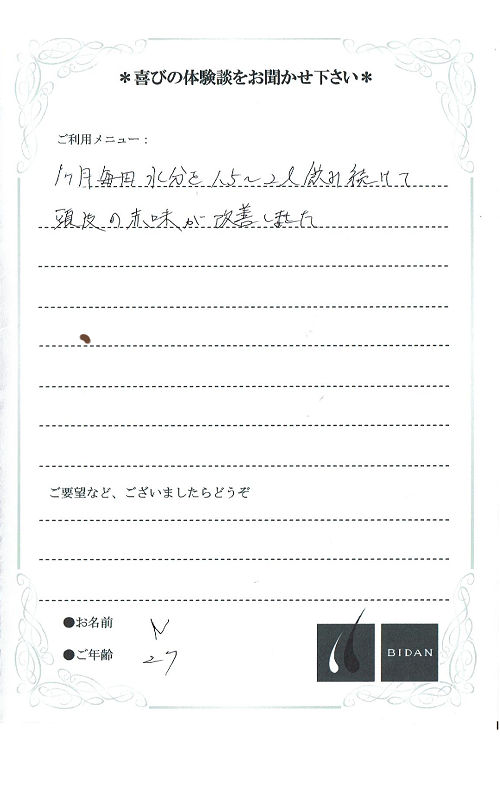 ＊喜びの体験談をお聞かせ下さい＊
ご利用メニュー：
1ヶ月毎日水分を1.5～2ℓ飲み続けて
頭皮の赤味が改善しました
ご要望など、ございましたらどうぞ
●お名前 N
●ご年齢 27
BIDAN